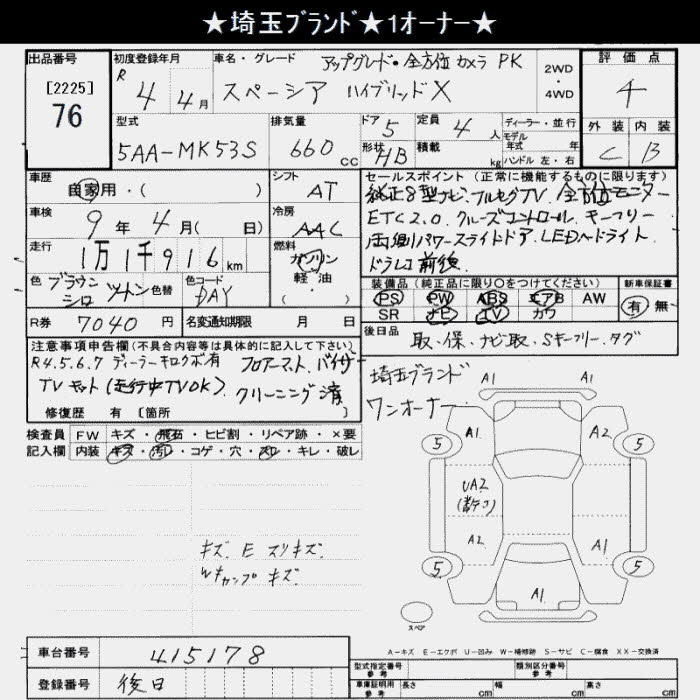 ★埼玉ﾌﾞﾗﾝﾄﾞ★1オーナー★
出品番号
[2225]
76
初度登録年月
R 4年 4月
車名・グレード
アップグレード・全方位カメラ PK
スペーシア ハイブリッドX
2WD
・
4WD
評価点
4
外装 内装
C B
型式
5AA-MK53S
排気量
660cc
ドア 5
形状 HB
定員 4人
積載 kg
ディーラー・並行
モデル年式 年式
ハンドル 左・右
車歴
自家用・( )
シフト
AT
車検
9年 4月( 日)
冷房
AAC
走行
1万1千916km
燃料
ガソリン
軽油
・( )
色 ブラウン シロ ツートン 色替
色コード
DAY
R券 7040円
名変通知期限 月 日
セールスポイント(正常に機能するものに限ります)
純正8型ナビ、フルセグTV、全方位モニター
ETC2.0、クルーズコントロール、キーフリー
両側パワースライドドア、LEDヘドライト
ドラレコ前後
装備品(純正品に限り○をつけてください)
PS PW ABS エアB AW
SR ナビ TV カワ
新車保証書
有 無
後日品
取・保・ナビ取、Sキーフリー、タグ
注意事項申告欄(不具合内容等は具体的に記入して下さい)
R4.5.6.7 ディーラーキロクボ有 フロアーマット、バイザー
TVキット(走行中TVOK)、クリーニング済
修復歴 有 [箇所
検査員記入欄
FW キズ・飛石・ヒビ割・リペア跡・×要
内装 キズ・汚レ・コゲ・穴・スレ・キレ・破レ
キズ、E スリキズ、
Wキャップキズ
埼玉ブランド
ワンオーナー
A1 A1
A1 A2
5 5
UA2
A2 A1
5 5
A1
スペア
A-キズ E-エクボ U-凹み W-補修跡 S-サビ C-腐食 XX-交換済
車台番号 415178
登録番号 後日
型式指定番号 参考
類別区分番号 参考
車庫証明用 参考
長さ cm 幅 cm 高さ cm